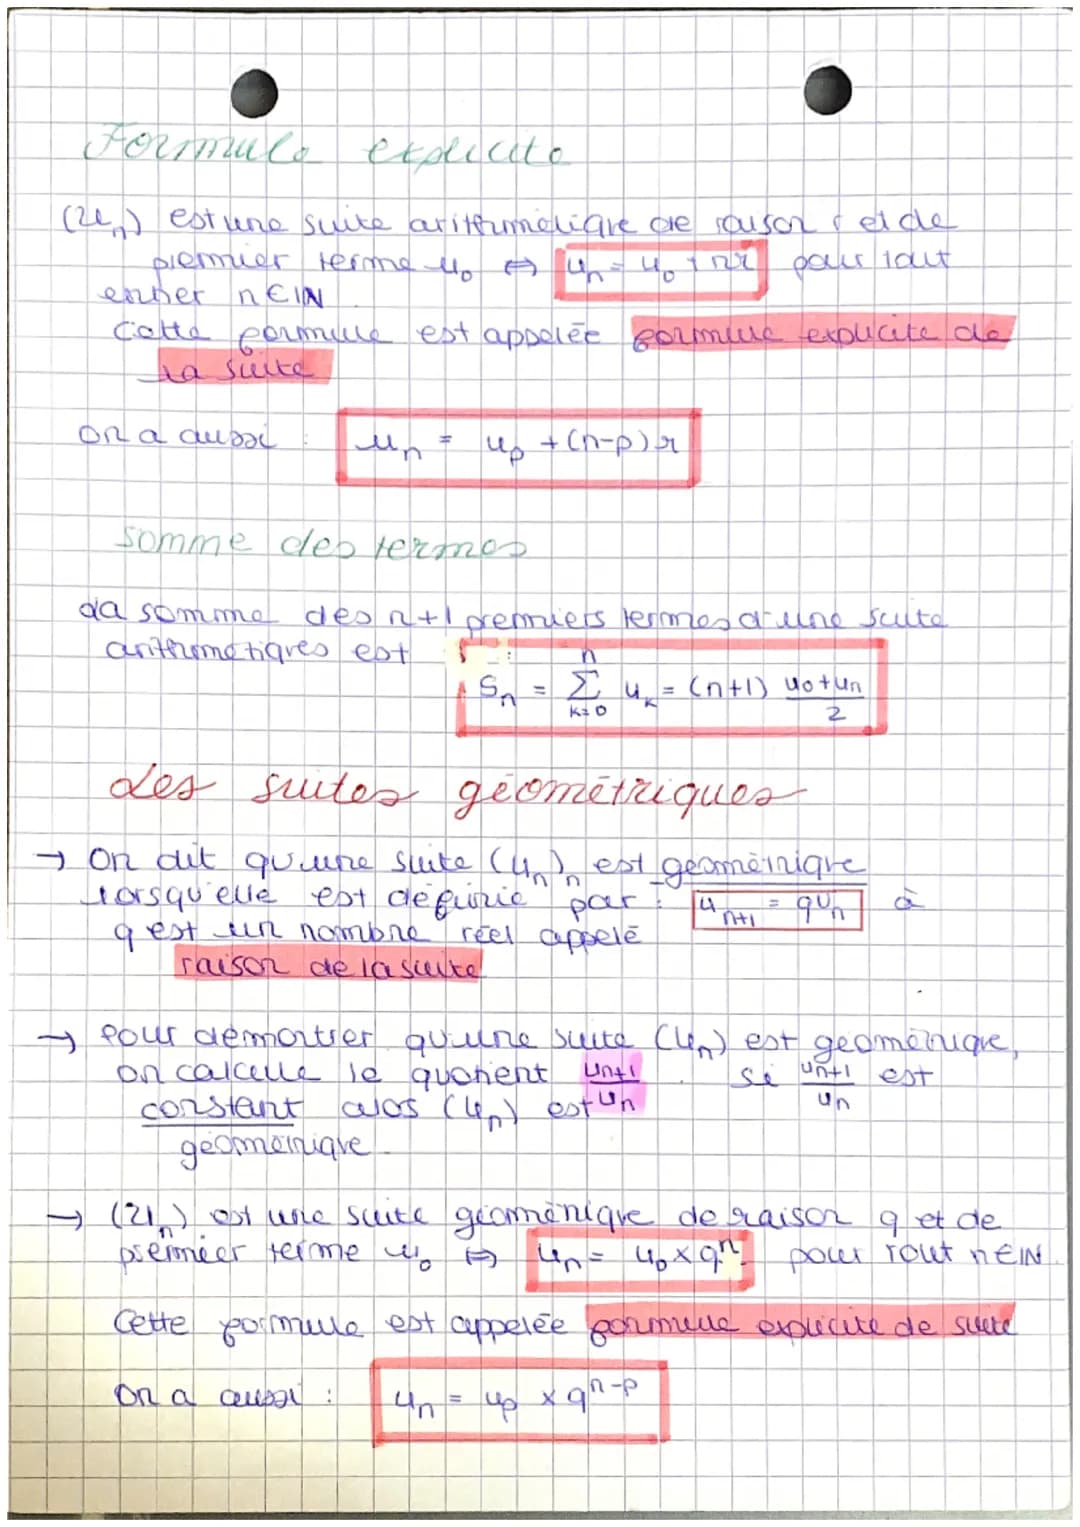 Formule explicite
(Un) est une suite arithmétique de raison r et de
premier terme u₀ ⇔ uₙ = u₀ + nr pour tout
entier n ∈ IN
Cette formule est appelée formule explicite de
la suite
On a aussi : uₙ = uₚ + (n-p)r
Somme des termes
La somme des n+1 premiers termes d'une suite
arithmétiques est :
Sₙ = Σ(k=0 → n) uₖ = (n+1) (u₀+uₙ)/2
Les suites géométriques
→ On dit qu'une suite (uₙ)ₙ est géométrique
lorsqu'elle est définie par : uₙ₊₁ = quₙ à
q est un nombre réel appelé
raison de la suite
→ Pour démontrer qu'une suite (uₙ) est géométrique,
on calcule le quotient uₙ₊₁/uₙ . si uₙ₊₁/uₙ est
constant alos (uₙ) est
géométrique.
→ (Uₙ) est une suite géométrique de raison q et de
premier terme u₀ ⇔ uₙ = u₀ × qⁿ. pour tout n ∈ IN.
Cette formule est appelée formule explicite de suite
On a aussi : uₙ = uₚ × qⁿ⁻ᵖ